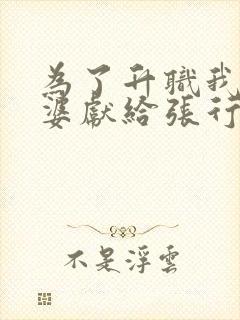 為了升職我
婆獻給張行
不是浮雲